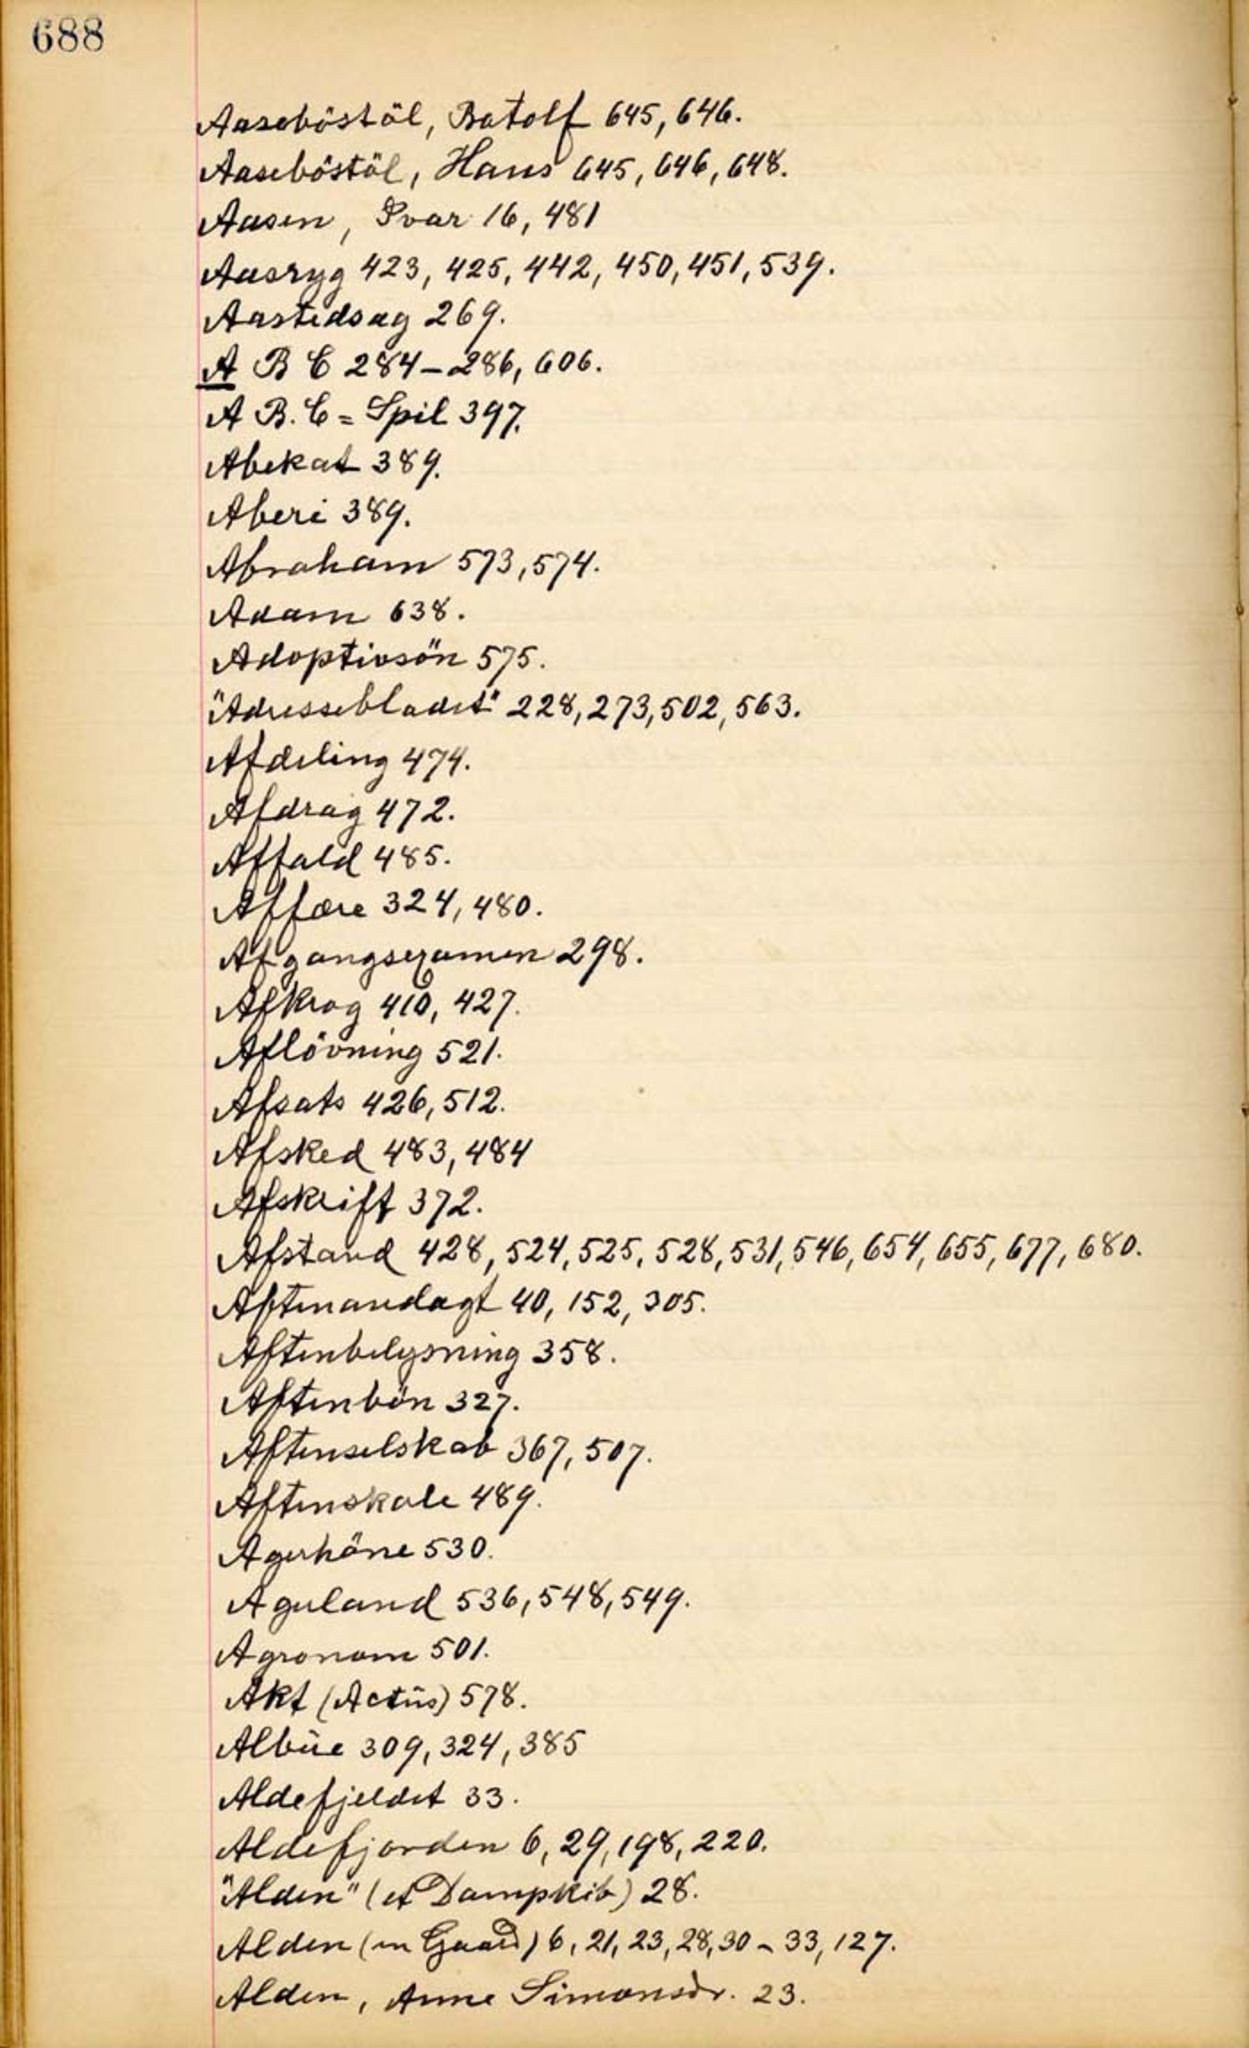 688
Aaseböstöl, Botolf 645, 646.
Aaseböstöl, Hans 645, 646, 648.
Aasen, Ivar 16, 481
Aasryg 423, 425, 442, 450, 451, 539.
Aastedsag 269.
A B C 284–286, 606.
A B. C = Spil 397.
Abekat 389.
Aberi 389.
Abraham 573, 574.
Adam 638.
Adoptivsön 575.
"Adressebladet" 228, 273, 502, 563.
Afdeling 474.
Afdrag 472.
Affald 485.
Affære 324, 480.
Afgangsexamen 298.
Afkrog 410, 427.
Aflövning 521.
Afsats 426, 512.
Afsked 483, 484
Afskrift 372.
Afstand 428, 524, 525, 528, 531, 546, 654, 655, 677, 680.
Aftenandagt 40, 152, 305.
Aftenbelysning 358.
Aftenbön 327.
Aftenselskab 367, 507.
Aftenskole 489.
Agerhöne 530.
Ageland 536, 548, 549.
Agronom 501.
Akt (Actüs) 578.
Albüe 309, 324, 385
Aldefjeldet 33.
Aldefjorden 6, 29, 198, 220.
"Alden" (et Dampskib) 28.
Alden (en Gaard) 6, 21, 23, 28, 30 – 33, 127.
Alden, Anne Simonsdr. 23.